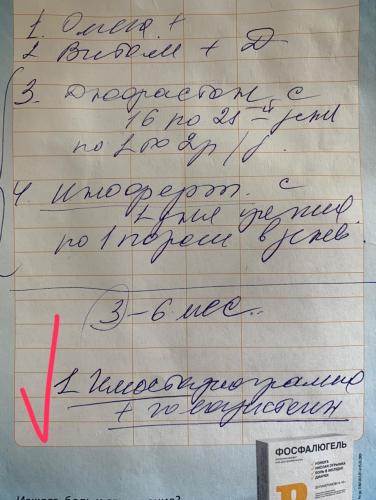 1. Омега +
2. Витам + Д
3. Дюфастон с
16 по 25 - й день
по 1 т 2р / д.
4. Иноферт. с
1 дня цикла
по 1 порош в день.
3 - 6 мес..
1 Гемостазиограмма
+ гомоцистеин
ФОСФАЛЮГЕЛЬ
ИЗЖОГА
КИСЛАЯ ОТРЫЖКА
БОЛЬ В ЖЕЛУДКЕ
ДИАРЕЯ